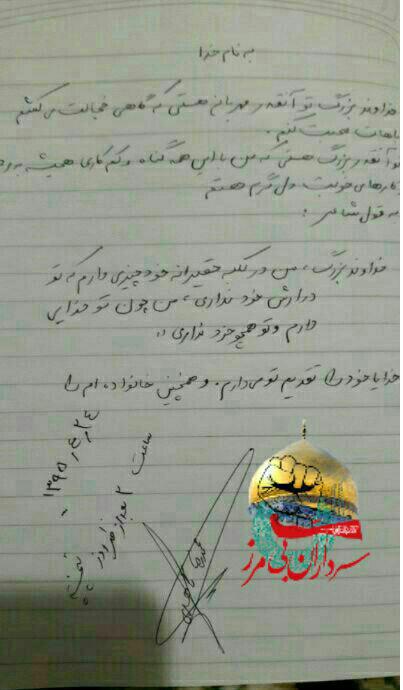 به نام خدا
خداوند بزرگ تو آنقدر مهربانی هستی که گاهی خجالت می‌کشم
باهات صحبت کنم.
تو آنقدر بزرگ هستی که من با این همه گناه و کم کاری همیشه به
کارهای خوبت دل گرم هستم
به قول شاعر:
خداوند بزرگ، من در کلبه حقیرانه خود چیزی دارم که تو
در ارش خود نداری، من چون تو خدایی
دارم و تو همچو خود نداری.
خدایا خود را تقدیم تو می‌دارم. و همچنین خانواده ام را
۱۳۹۵،۶،۲۴
ساعت ۲ بعد از ظهر روز
سرداران بی مرز